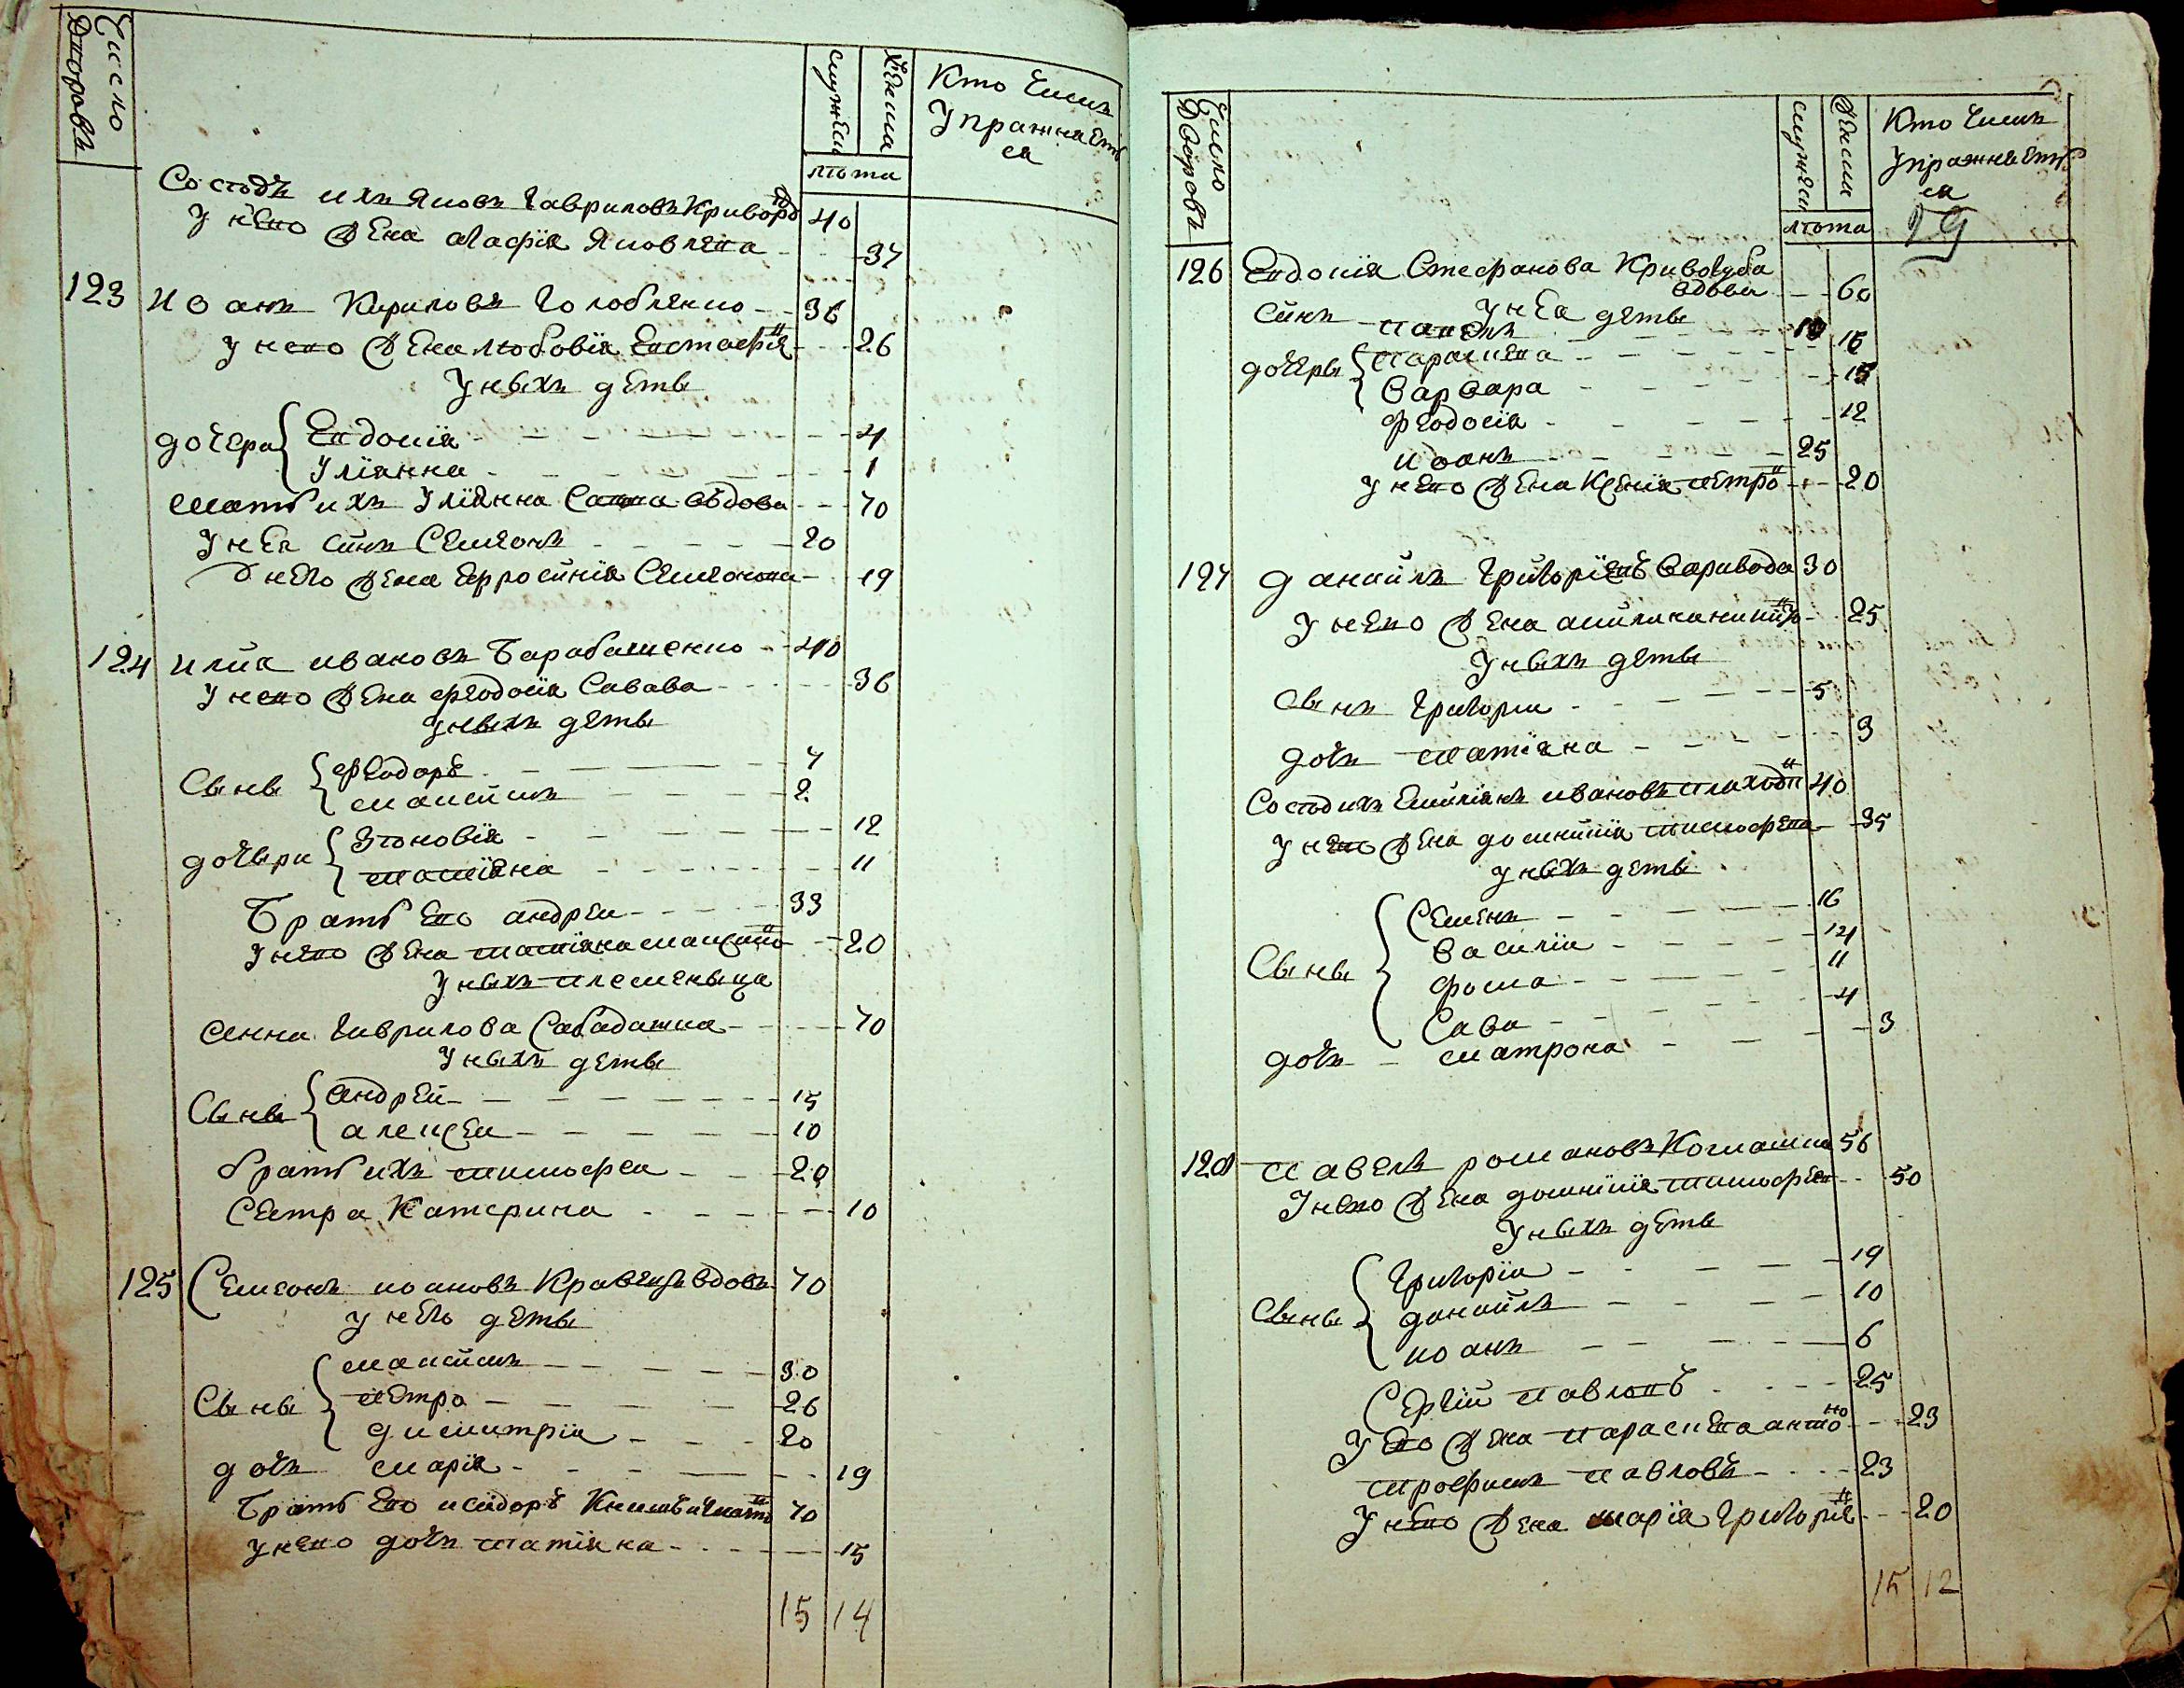 Число Дворовъ
мужеска
женска
Кто чемъ
упражняет
ся
лета
Состодъ ихъ Яковъ Гавриловъ Кривор 40
У него жена Агафія Яковлева 37
123 Иоанъ Кириловъ Голобленко 36
У него жена Любовія Евстафіе 26
У ныхъ деты
дочеры Евдокія 4
Уліянна 1
Мать ихъ Уліянна Савна вдова 70
У нея синъ Семеонъ 20
У него жена Ефросинія Семеонова 19
124 Илия Ивановъ Барабашенко 40
У него жена Феодосія Савова 36
У ныхъ деты
Сыны Феодоръ 7
Максимъ 2
дочеры Зѣновія 12
Татіяна 11
Братъ его Андреи 33
У него жена Татіяна Максимо 20
У ныхъ племеныца
Анна Гаврилова Сабадашка 70
У ныхъ деты
Сыны Андрей 15
Алексеи 10
братъ ихъ Тимофеи 20
Сестра Катерина 10
125 Семеонъ Иоановъ Кравецъ вдовъ 70
У него деты
Сыны Максимъ 30
Петро 26
Димитрій 20
дочъ Марія 19
Братъ его Исидоръ 70
У него дочъ Татіяна 15
15 14
Число Дворовъ
мужеска
женска
Кто чемъ
упражняет
ся
лета
29
126 Евдокія Стефанова Кривогуба
вдова 60
У нея деты
Синъ Павелъ
дочеры Параскева 16
Варвара 15
Феодосія 12
Иоанъ 25
У него жена Ксенія Петро 20
127 Данійлъ Григоріевъ Варивода 30
У него жена 25
У ныхъ деты
Сынъ Григорій 5
дочъ Татіяна 3
Состодъ ихъ Емиліянъ Ивановъ 40
У него жена Домникія Тимофева 35
У ныхъ деты
Сыны Семенъ 16
Василій 14
Фома 11
Сава 4
дочъ Матрона 3
128 Павелъ Романовъ 56
У него жена Домникія Тимофее 50
У ныхъ деты
Сыны Григорій 19
Данійлъ 10
Иоанъ 6
Сергій Павловъ 25
У его жена Параскева Антоно 23
Трофимъ Павловъ 23
У него жена Марія Григоріе 20
15 12